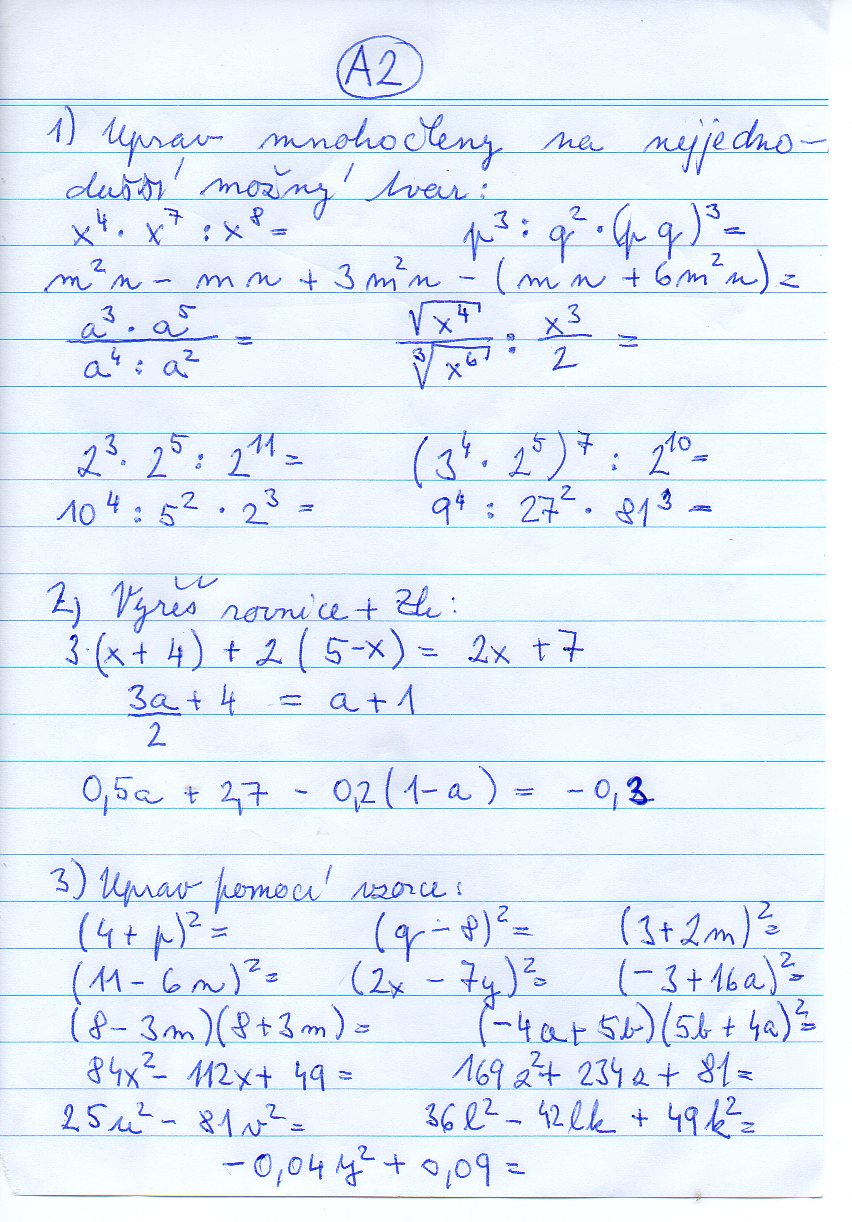 A2
1) Uprav mnohočleny na nejjedno-
dušší možný tvar:
x⁴ · x⁷ : x⁸ = p³ : q² · (p q)³ =
m²n - mn + 3m²n - (mn + 6m²n) =
(a³ · a⁵)/(a⁴ : a²) = √(x⁴)/∛(x⁶) : x³/2 =
2³ · 2⁵ : 2¹¹ = (3⁴ · 2⁵)⁷ : 2¹⁰ =
10⁴ : 5² · 2³ = 9⁴ : 27² · 81³ =
2) Vyřeš rovnice + Zk:
3·(x + 4) + 2(5-x) = 2x + 7
3a/2 + 4 = a + 1
0,5a + 2,7 - 0,2(1-a) = -0,3
3) Uprav pomocí vzorce:
(4 + p)² = (q - 8)² = (3 + 2m)² =
(11 - 6n)² = (2x - 7y)² = (-3 + 16a)² =
(8 - 3m)(8 + 3m) = (-4a + 5b)(5b + 4a)² =
84x² - 112x + 49 = 169z² + 234z + 81 =
25u² - 81v² = 36l² - 42lk + 49k² =
-0,04y² + 0,09 =